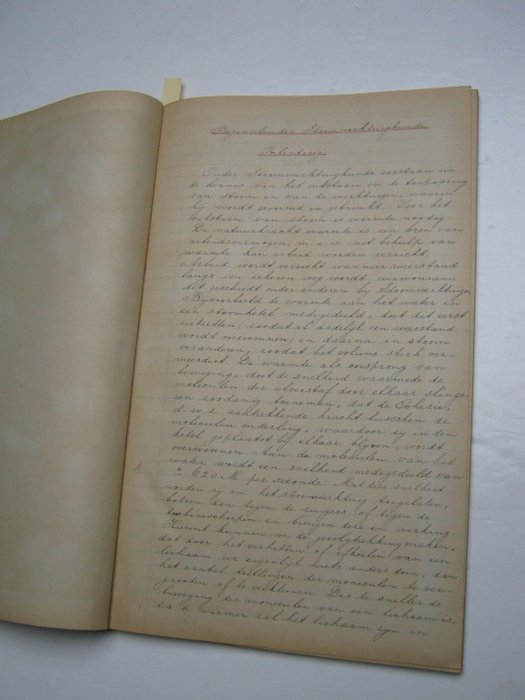 Beginselen der Stoomwerktuigkunde
Inleiding
Onder Stoomwerktuigkunde verstaan we
de kennis van het ontstaan en de toepassing
van stoom en van de werktuigen, waarin
hij wordt gevormd en gebruikt. Voor het
ontstaan van stoom is warmte noodig.
De natuurkracht warmte is een bron van
arbeidsvermogen; m.a.w. met behulp van
warmte kan arbeid worden verricht.
Arbeid wordt verricht wanneer weerstand
langs een zekeren weg wordt overwonnen,
dit geschiedt onder anderen bij Stoomwerktuigen
Bijvoorbeeld de warmte aan het water in
een stoomketel medegedeeld, doet dit eerst
uitzetten, (zoodat al dadelijk een weerstand
wordt overwonnen) en daarna in stoom
veranderen, zoodat het volume sterk ver-
meerdert. De warmte als oorsprong van
beweging, doet de snelheid waarmede de
moleculen der vloeistof door elkaar slinge-
ren zoodanig toenemen, dat de Cohesie,
d.w.z. aantrekkende kracht tusschen de
moleculen onderling, waardoor zij in den
ketel geplaatst bij elkaar blijven, wordt
overwonnen. Aan de moleculen van het
water wordt een snelheid medegedeeld van
± 620 M. per seconde. Met die snelheid
worden zij in het stoomwerktuig toegelaten,
botsen dan tegen de zuigers of tegen de
turbineschoepen en brengen deze in werking.
Hieruit kunnen we de gevolgtrekking maken,
dat door het verhitten of afkoelen van een
lichaam we eigenlijk niets anders doen, dan
het aantal trillingen der moleculen te ver-
grooten of te verkleinen. Dus de sneller de
beweging der moleculen van een lichaam is,
des te warmer zal het lichaam zijn en